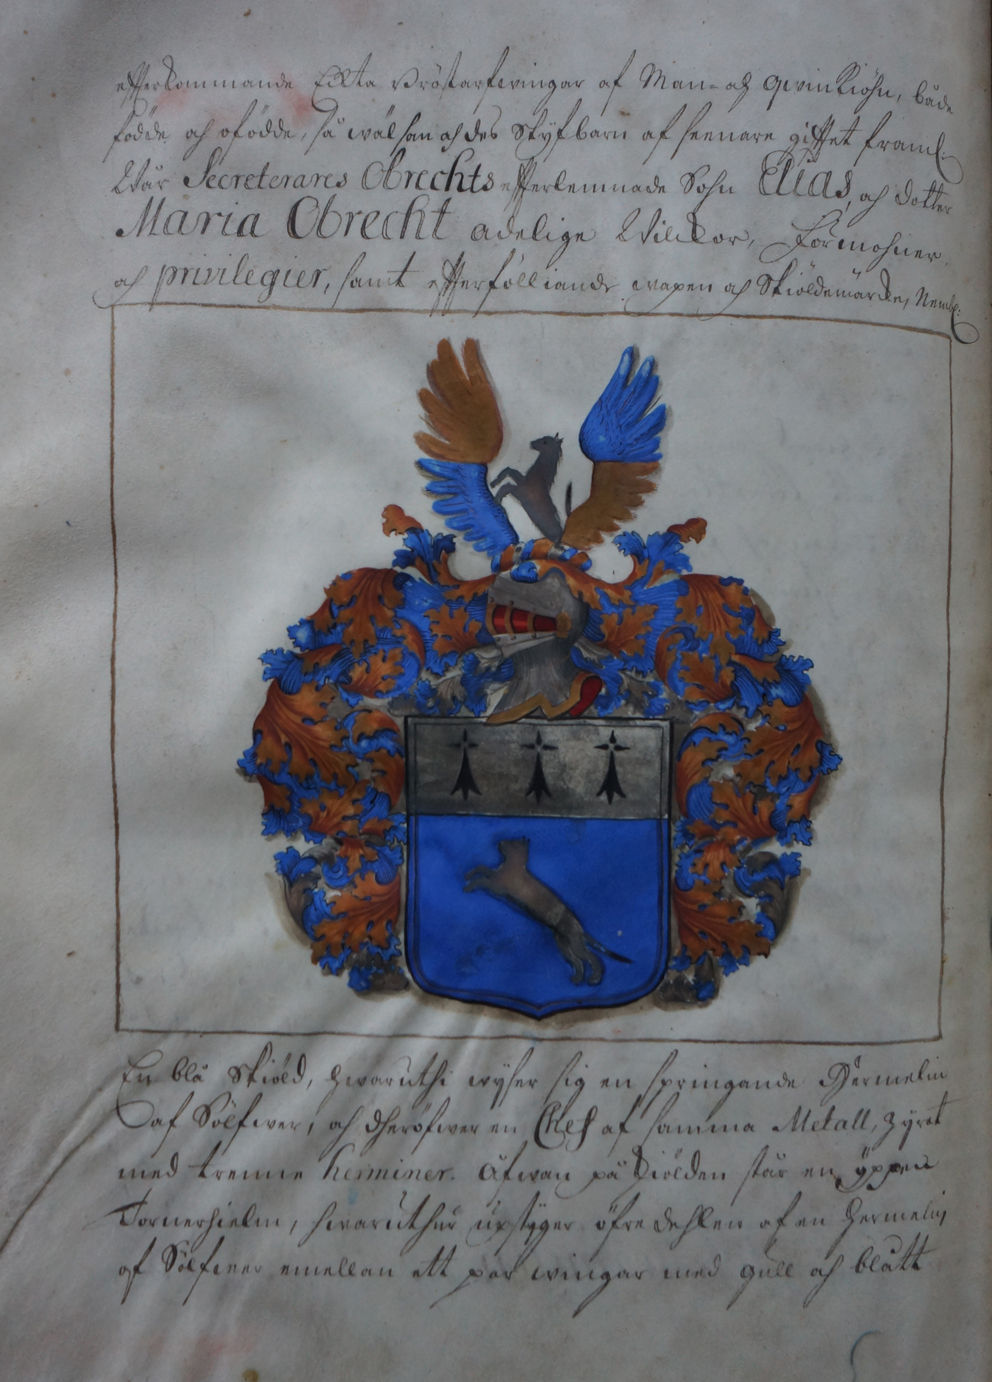 effterkommande Eckta Bröstarfwingar af Man- och Qwinkiöhn, både
födde och ofödde, så wäl han och des Styfbarn af seenare gifftet framl:
Wår Secreterares Obrechts effterlemnade Sohn Elias, och dotter
Maria Obrecht adelige Wilckor, Förmohner
och privilegier, samt effterfölliande wapen och Skiöldemärcke, Nembl:
En blå Skiöld, hwaruthi wyser sig en springande Hermelin
af Sölfwer, och dheröfwer en Chef af samma Metall, zyrat
med trenne herminer. Åfwan på Skiölden står en öppen
Tornerhielm, hwaruthur upstyger öfre dehlen af en Hermelin
af Sölfwer emellan ett par wingar med gull och blått